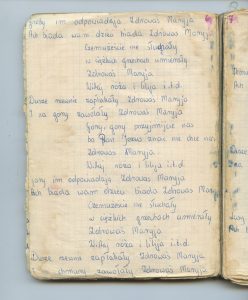 Góry im odpowiadają Zdrowaś Maryja
Ach biada wam dzieci biada Zdrowaś Maryja
Czemuście nie słuchały
w ciężkich grzechach umierały
Zdrowaś Maryja
Witaj róża i lilija i.t.d.
Dusze rzewnie zapłakały Zdrowaś Maryja
I na góry zawołały Zdrowaś Maryja
Góry, góry przyjmijcie nas
bo Pan Jezus znać nie chce nas
Zdrowaś Maryja
Witaj róża i lilija i.t.d.
Góry im odpowiadają Zdrowaś Maryja
Ach biada wam dzieci biada Zdrowaś Maryja
Czemuście nie słuchały
w ciężkich grzechach umierały
Zdrowaś Maryja
Witaj róża i lilija i.t.d.
Dusze rzewnie zapłakały Zdrowaś Maryja
chmury zawołały Zdrowaś Maryja